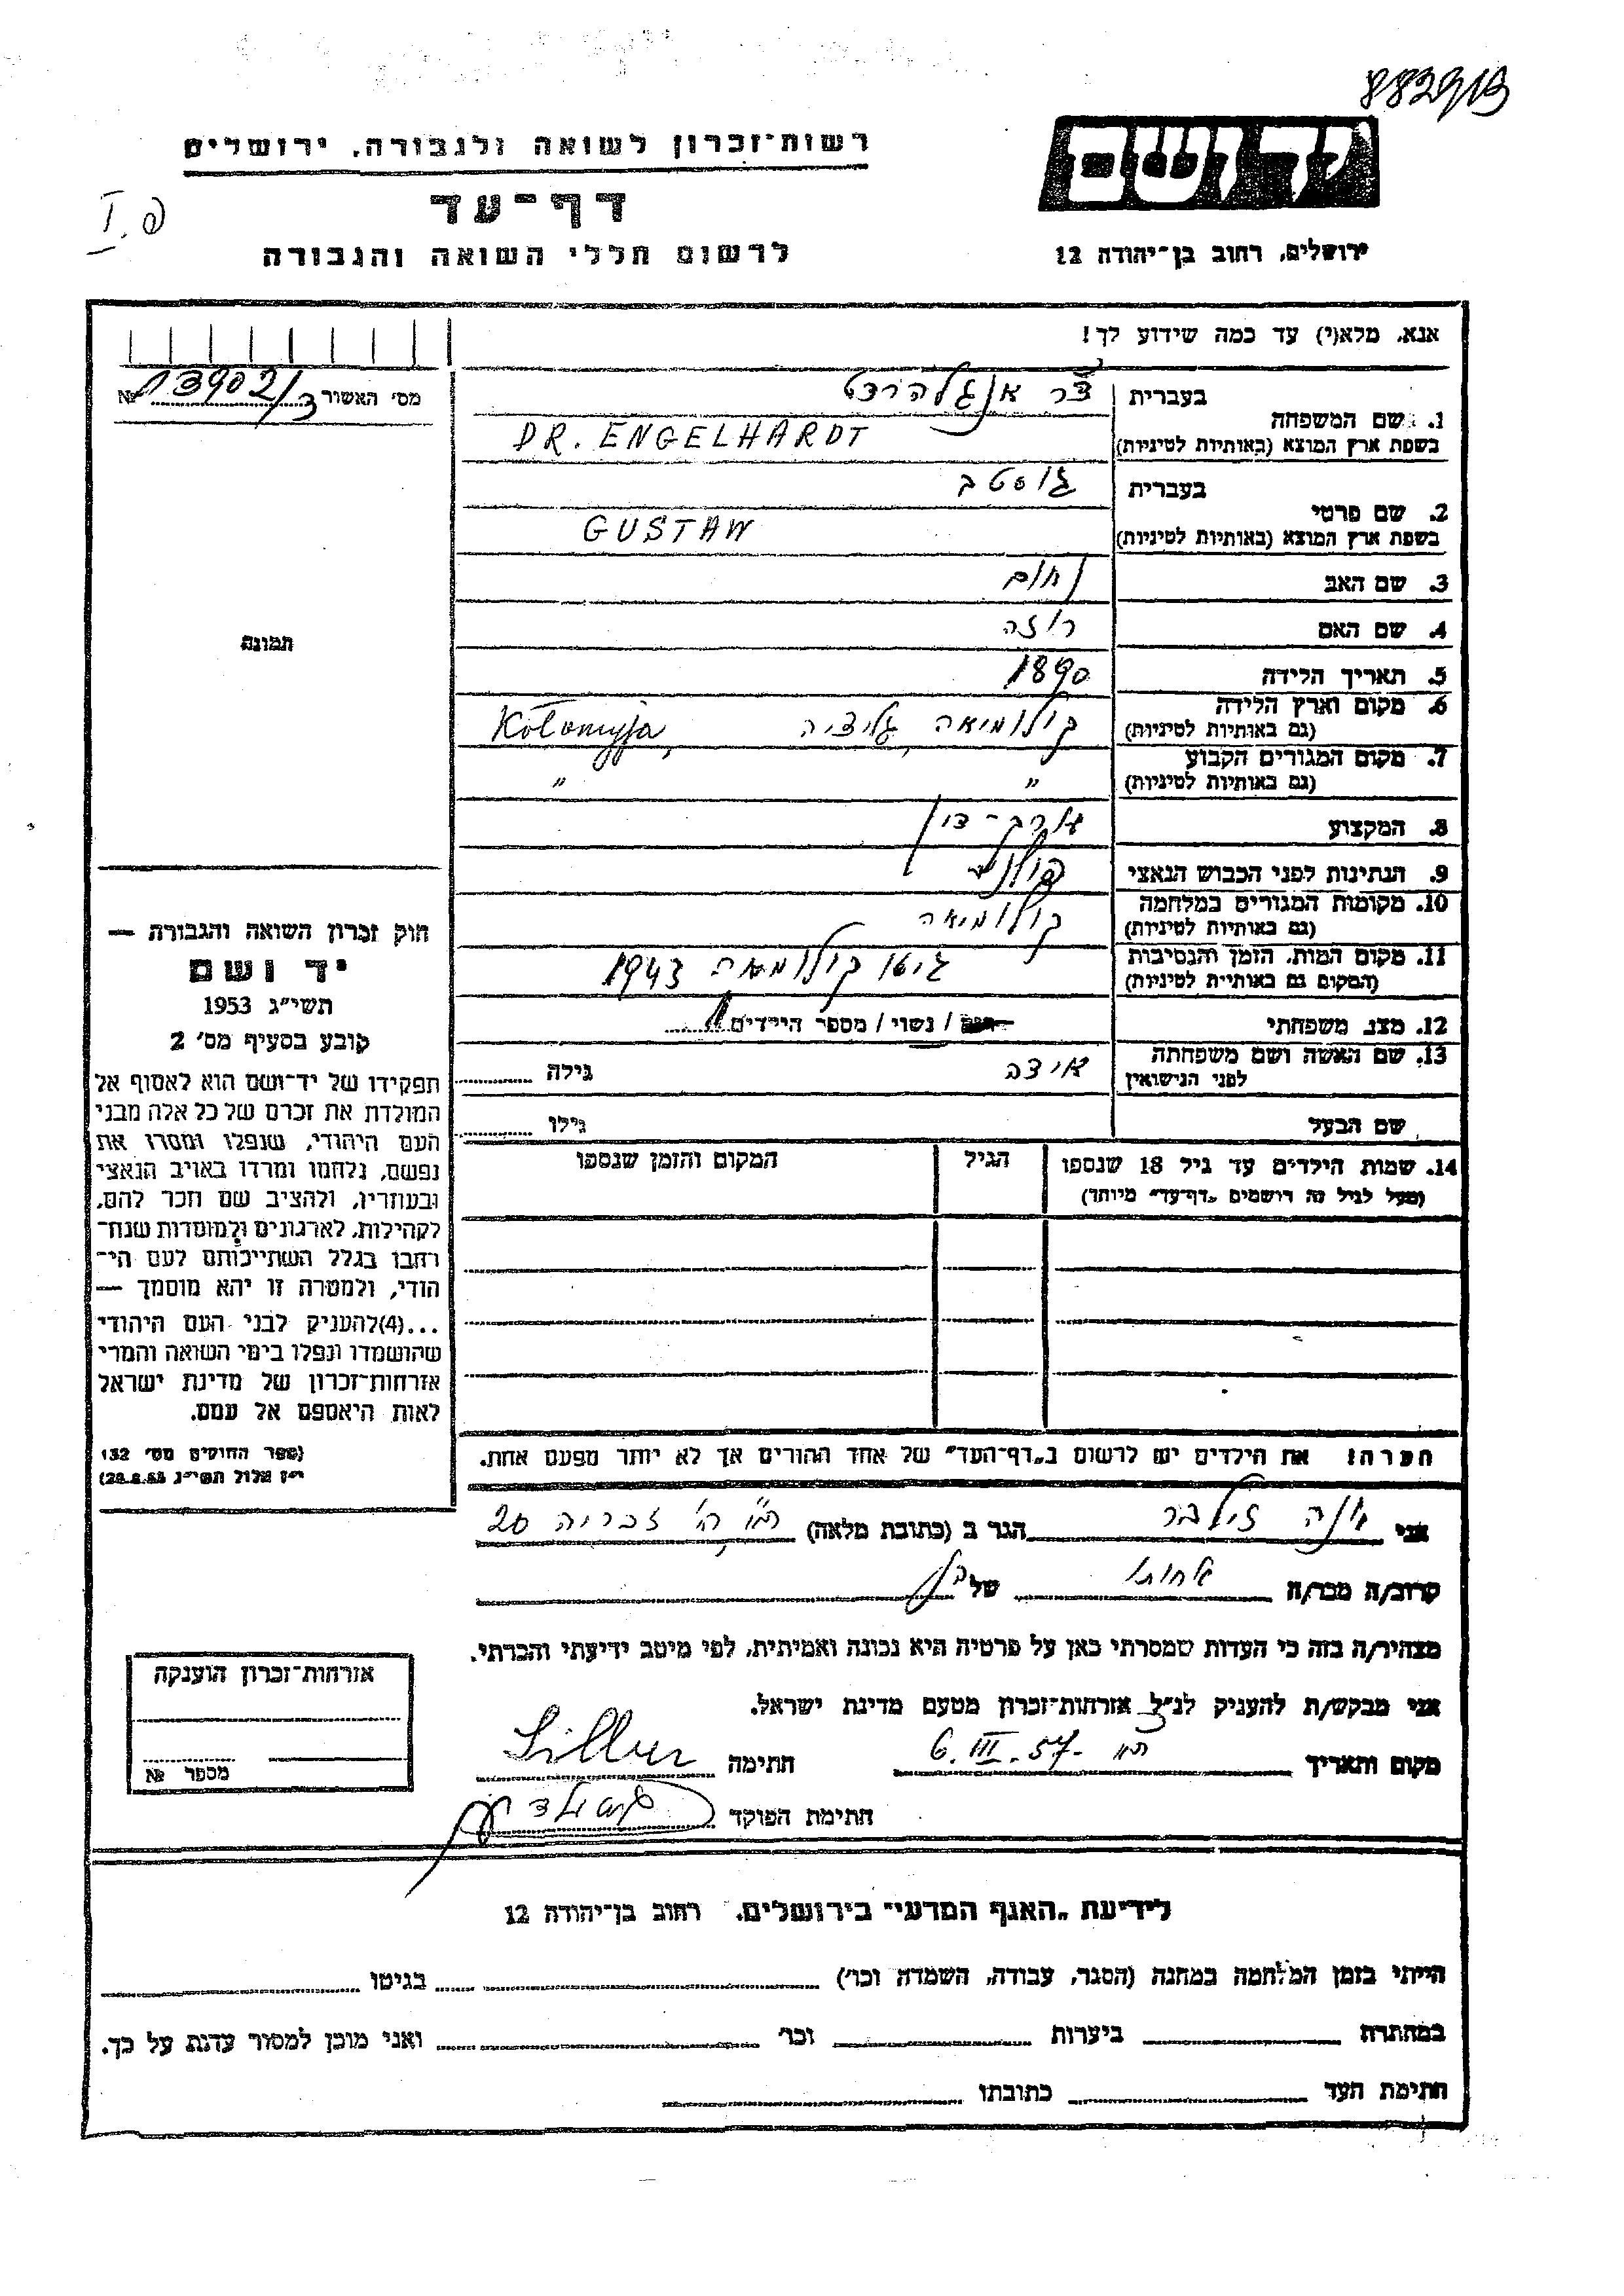 882919
רשות־זכרון לשואה ולגבורה, ירושלים
יד ושם
דף־עד
לרשום חללי השואה והגבורה
ירושלים, רחוב בן־יהודה 12
אנא, מלא(י) עד כמה שידוע לך!
מס׳ האשור 13902/3 №
1. שם המשפחה
בעברית ד״ר אנגלהרדט
בשפת ארץ המוצא (באותיות לטיניות) DR. ENGELHARDT
2. שם פרטי
בעברית גוסטב
בשפת ארץ המוצא (באותיות לטיניות) GUSTAW
3. שם האב נחום
4. שם האם רוזה
5. תאריך הלידה 1890
6. מקום וארץ הלידה קולומיאה, גליציה Kołomyja,
(גם באותיות לטיניות)
7. מקום המגורים הקבוע " "
(גם באותיות לטיניות)
8. המקצוע עורך-דין
9. הנתינות לפני הכבוש הנאצי פולנ
10. מקומות המגורים במלחמה קולומיאה
(גם באותיות לטיניות)
11. מקום המות, הזמן והנסיבות גיטו קולומאה 1943
(המקום גם באותיות לטיניות)
12. מצב משפחתי רווק / נשוי / מספר הילדים 1
13. שם האשה ושם משפחתה
לפני הנישואין
גילה
שם הבעל גילו
14. שמות הילדים עד גיל 18 שנספו הגיל המקום והזמן שנספו
(מעל לגיל זה רושמים „דף־עד״ מיוחד)
הערה! את הילדים יש לרשום ב„דף־העד״ של אחד ההורים אך לא יותר מפעם אחת.
תמונה
חוק זכרון השואה והגבורה —
יד ושם
תשי״ג 1953
קובע בסעיף מס׳ 2
תפקידו של יד־ושם הוא לאסוף אל
המולדת את זכרם של כל אלה מבני
העם היהודי, שנפלו ומסרו את
נפשם, נלחמו ומרדו באויב הנאצי
ובעוזריו, ולהציב שם וזכר להם,
לקהילות, לארגונים ולמוסדות שנח־
רחבו בגלל השתייכותם לעם הי־
הודי, ולמטרה זו יהא מוסמך —
...(4)להעניק לבני העם היהודי
שהושמדו ונפלו בימי השואה והמרי
אזרחות־זכרון של מדינת ישראל
לאות היאספם אל עמם.
(ספר החוקים מס׳ 132
י״ז אלול תשי״ג 28.8.53)
אני זילבר הגר ב (כתובת מלאה) 20
קרוב/ה מכר/ה אחותו של
מצהיר/ה בזה כי העדות שמסרתי כאן על פרטיה היא נכונה ואמיתית, לפי מיטב ידיעתי והכרתי.
אני מבקש/ת להעניק לנ״ל אזרחות־זכרון מטעם מדינת ישראל.
מקום ותאריך 6. III. 57 חתימה
חתימת הפוקד
אזרחות־זכרון הוענקה
מספר №
לידיעת „האגף המדעי״ בירושלים. רחוב בן־יהודה 12
הייתי בזמן המלחמה במחנה (הסגר, עבודה, השמדה וכו׳) בגיטו
במחתרת ביערות וכו׳ ואני מוכן למסור עדות על כך.
חתימת העד כתובתו